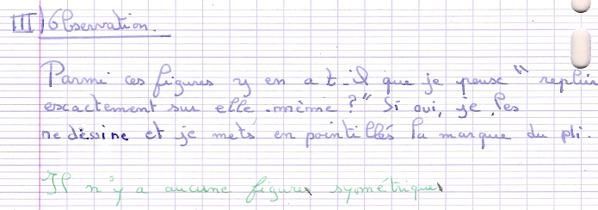 III) Observation.
Parmi ces figures y en a t-il que je peuse " replier
exactement sur elle-même ?" Si oui, je les
redéssine et je mets en pointillés la marque du pli.
Il n'y a aucune figure symétrique